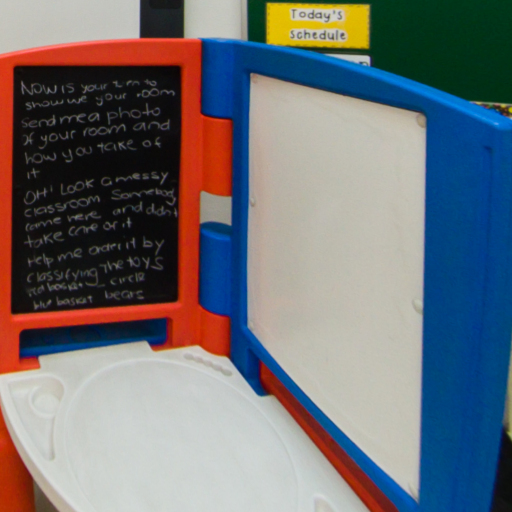 Today's
schedule
NOW is your turn to
show me your room
send me a photo
of your room and
how you take of
it
OH! LOOK a messy
classroom Somebody
came here and didn't
take care of it
Help me order it by
classifying the toys
red basket_ circle
blue basket bears